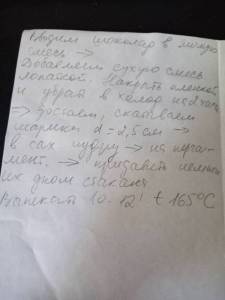 Вводим шоколад в жидкую
смесь →
Добавляем сухую смесь
лопаткой. Накрыть пленкой
и убрать в холод на 2 часа
→ достаем, скатываем
шарики d = 2,5 см →
в сах пудру → на перга-
мент. → придавить немного
их дном стакана
Выпекать 10-12' t 165°C